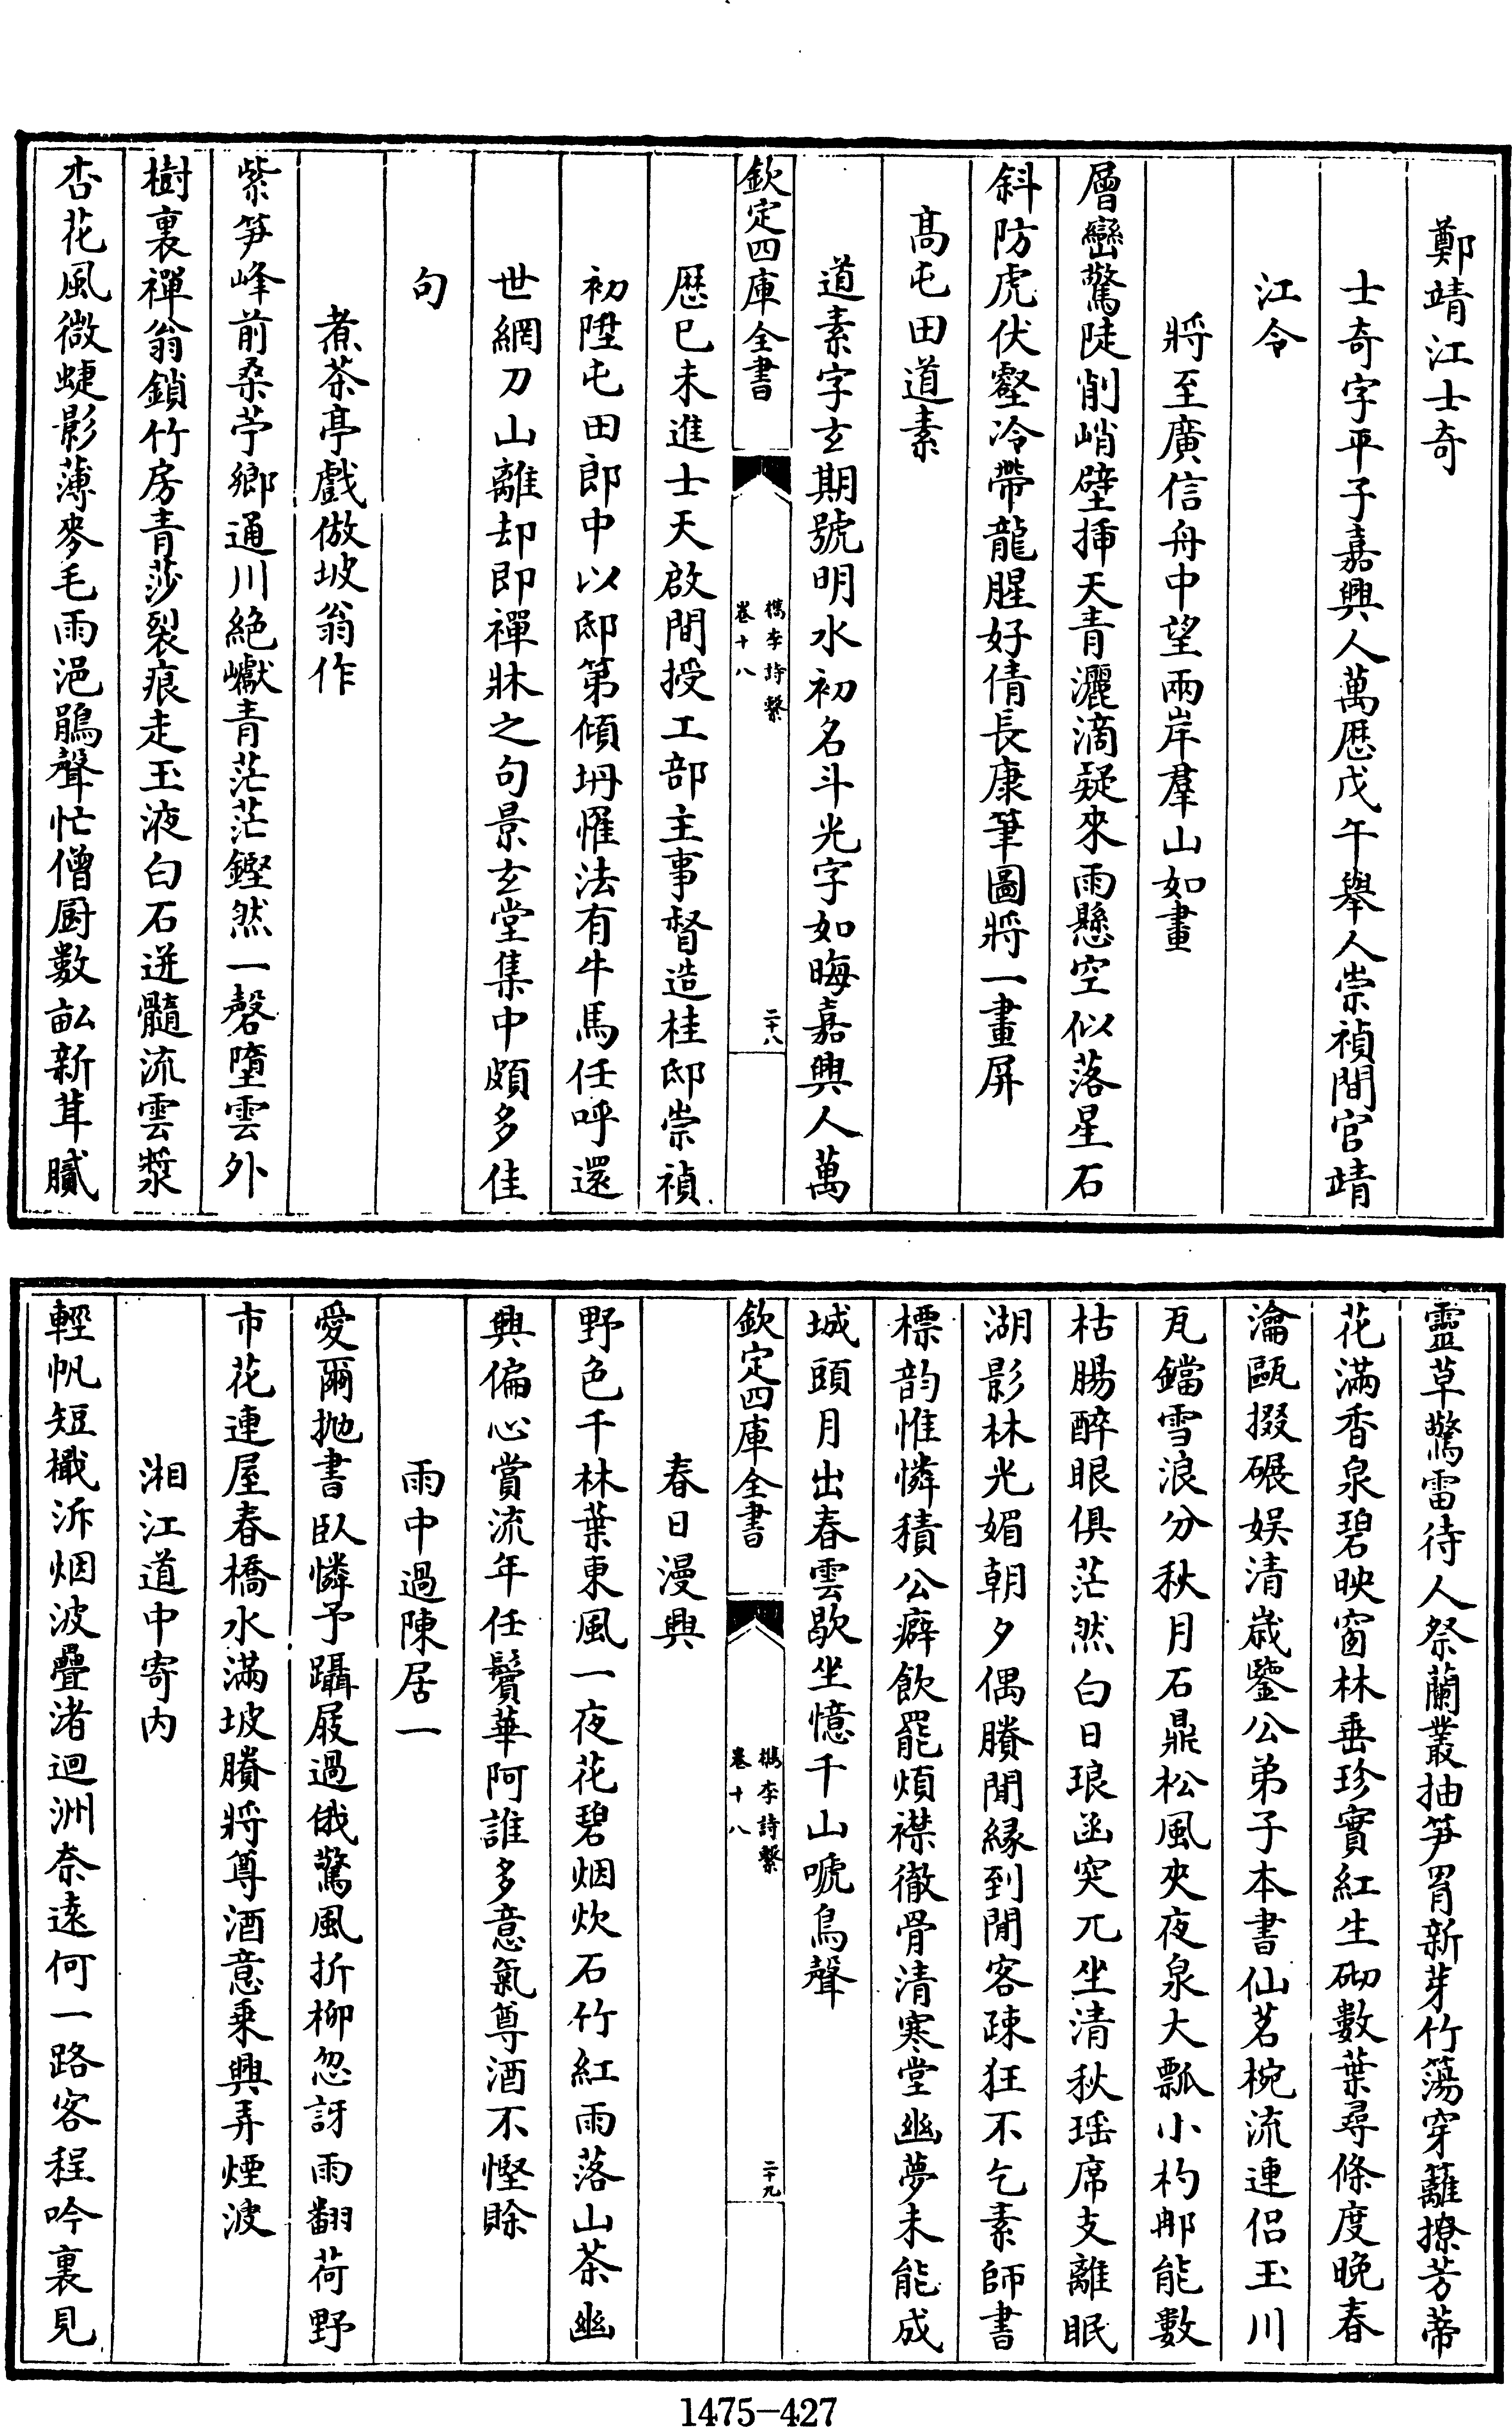 鄭靖江士奇
士奇字平子嘉興人萬厯戊午舉人崇禎間官靖
江令
將至廣信舟中望兩岸羣山如畫
層巒驚陡削峭壁揷天青灑滴疑來雨懸空似落星石
斜防虎伏壑冷帶龍腥好倩長康筆圖將一畫屏
髙屯田道素
道素字玄期號明水初名斗光字如晦嘉興人萬
欽定四庫全書
檇李詩繫
卷十八
二十八
厯巳未進士天啟間授工部主事督造桂邸崇禎
初陞屯田郎中以邸第傾坍罹法有牛馬任呼還
世網刀山離却即禪牀之句景玄堂集中頗多佳
句
煮茶亭戲倣坡翁作
紫笋峰前桑苧鄉通川絶巘青茫茫鏗然一磬墮雲外
樹裏禪翁鎖竹房青莎裂痕走玉液白石迸髓流雲漿
杏花風微蜨影薄麥毛雨浥鵑聲忙僧厨數畝新茸膩
靈草驚雷待人祭蘭叢抽笋胃新芽竹蕩穿籬撩芳蒂
花滿香泉碧映窗林垂珍實紅生砌數葉尋條度晩春
瀹甌掇碾娱清歳鑒公弟子本書仙茗椀流連侣玉川
瓦鐺雪浪分秋月石鼎松風夾夜泉大瓢小杓郍能數
枯腸醉眼俱茫然白日琅函突兀坐清秋瑶席支離眠
湖影林光媚朝夕偶賸閒縁到閒客疎狂不乞素師書
標韵惟憐積公癖飲罷煩襟徹骨清寒堂幽夢未能成
城頭月出春雲歇坐憶千山嗁鳥聲
欽定四庫全書
檇李詩繫
卷十八
二十九
春日漫興
野色千林葉東風一夜花碧烟炊石竹紅雨落山茶幽
興偏心賞流年任鬢華阿誰多意氣尊酒不慳賒
雨中過陳居一
愛爾抛書臥憐予躡屐過俄驚風折柳忽訝雨翻荷野
市花連屋春橋水滿坡賸將尊酒意乗興弄煙波
湘江道中寄内
輕帆短檝泝烟波疊渚迴洲奈逺何一路客程吟裏見
1475-427